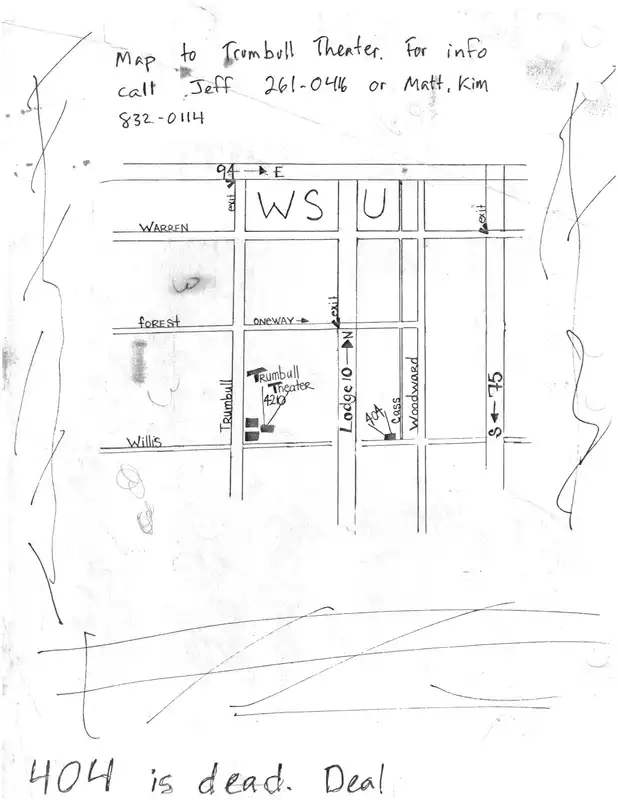 Map to Trumbull Theater. For info
call Jeff 261-0416 or Matt, Kim
832-0114
94 → E
exit
WSU
exit
WARREN
exit
FOREST
ONEWAY →
Trumbull
Trumbull
Theater
4210
Lodge 10 → N
404
Cass
Woodward
S ← 75
Willis
404 is dead. Deal